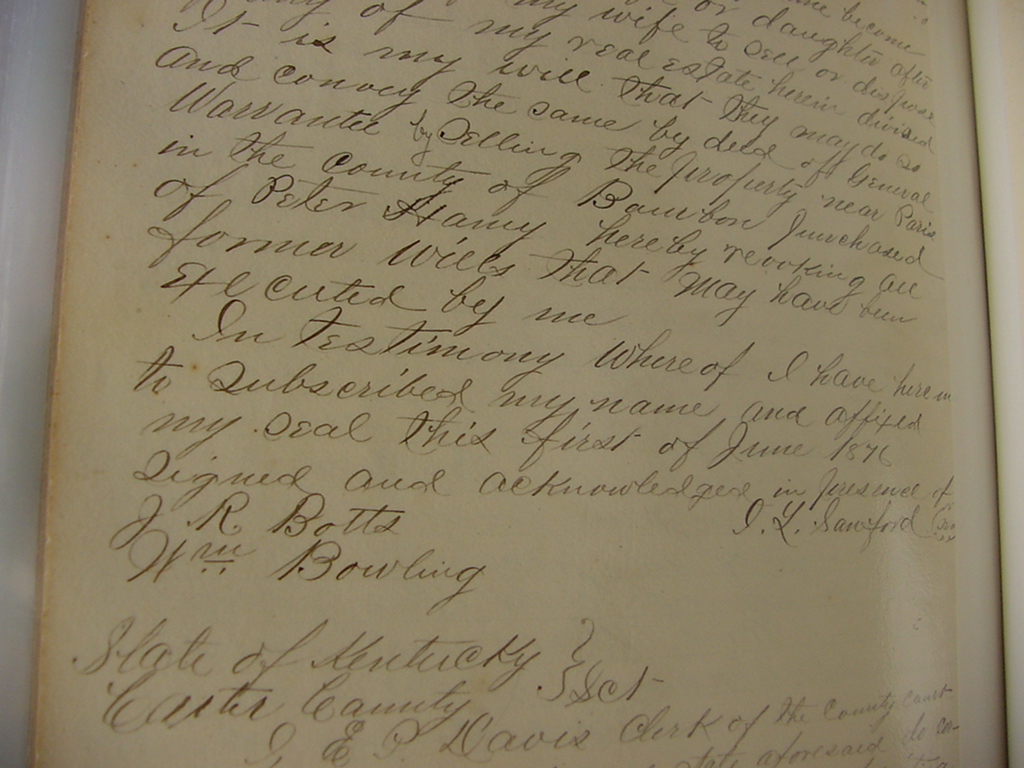 become
or daughter after
any of my wife to sell or dispose
of my real estate herein divised
It is my will that they may do so
and convey the same by deed off General
Warrantee by Selling the property near Paris
in the County of Bourbon purchased
of Peter Hamy hereby revoking all
former Wills that may have been
Executed by me
In Testimony Whereof I have herein
to Subscribed my name and affixed
my seal this first of June 1876
Signed and acknowledged in presence of
J. L. Sawford
J R Botts
Wm Bowling
State of Kentucky
Carter County } Sct
I, E. P. Davis Clerk of the County Court
state aforesaid do